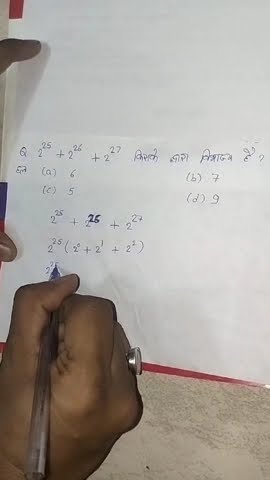 Q. 2^25 + 2^26 + 2^27 किसके द्वारा विभाज्य है ?
(a) 6 (b) 7
(c) 5 (d) 9
2^25 + 2^26 + 2^27
2^25 (2^0 + 2^1 + 2^2)